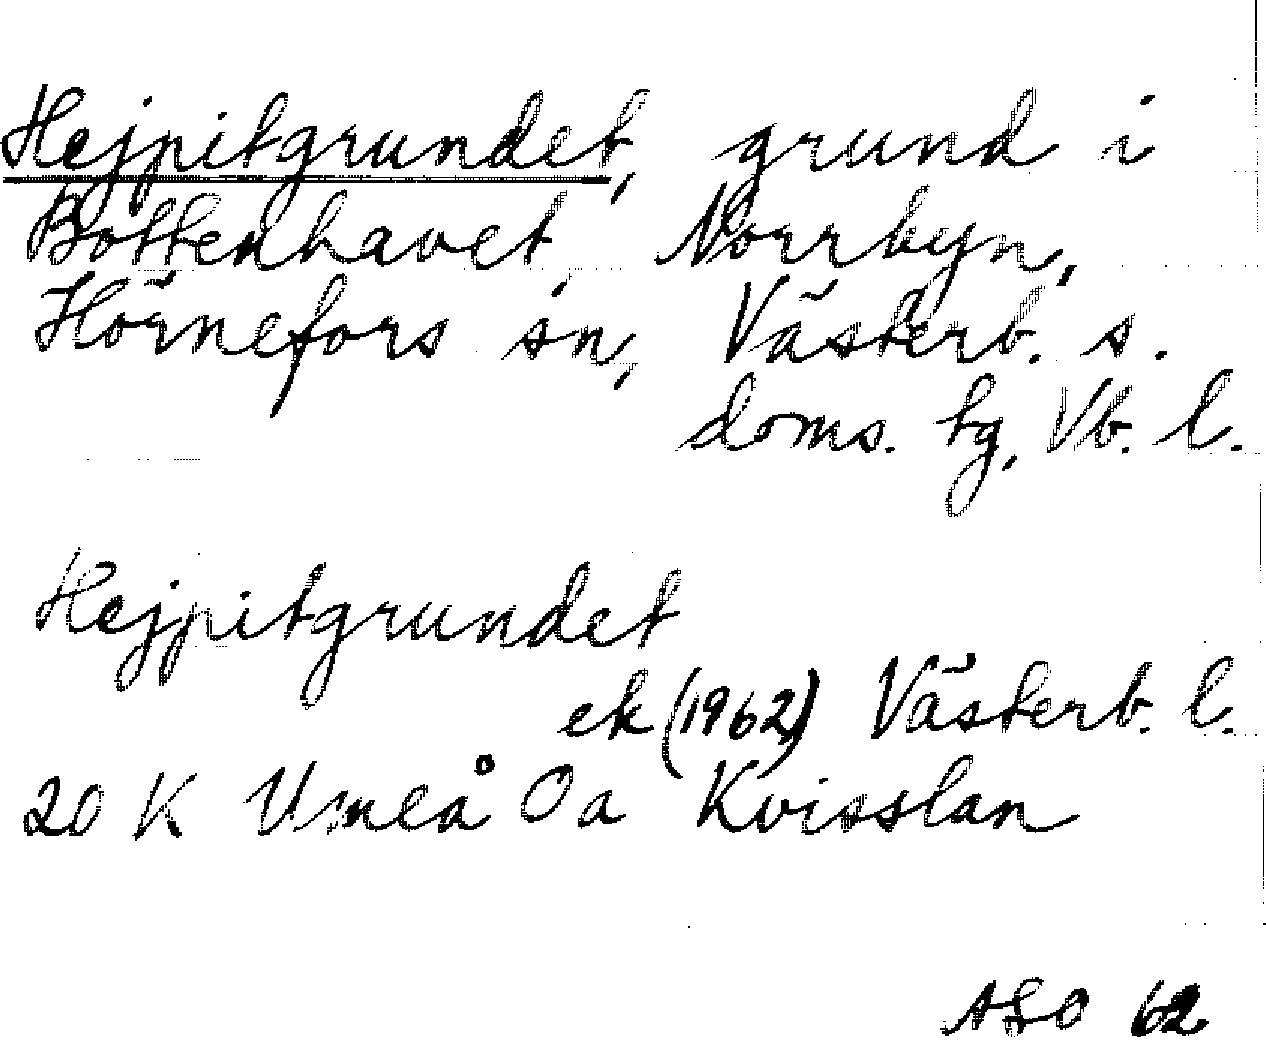 Hejpitgrundet, grund i
Bottenhavet, Norrbyn,
Hörnefors sn, Västerb. s.
doms. tg, Vb. l.
Hejpitgrundet
ek (1962) Västerb. l.
20 K Umeå Oa Kvisslan
ASO 62